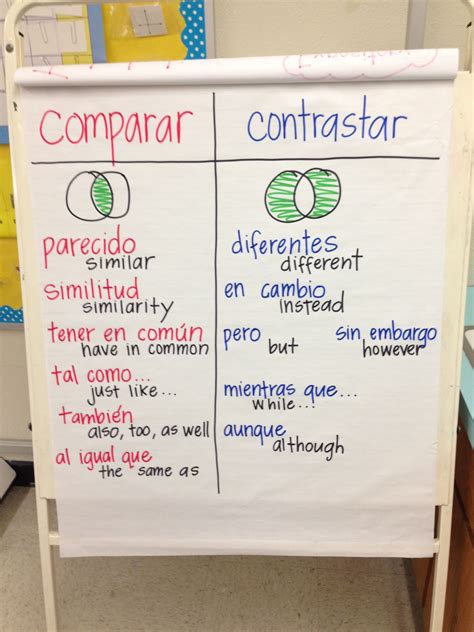 comparar
contrastar
parecido
similar
similitud
similarity
tener en común
have in common
tal como...
just like...
también
also, too, as well
al igual que
the same as
diferentes
different
en cambio
instead
pero
but
sin embargo
however
mientras que...
while...
aunque
although